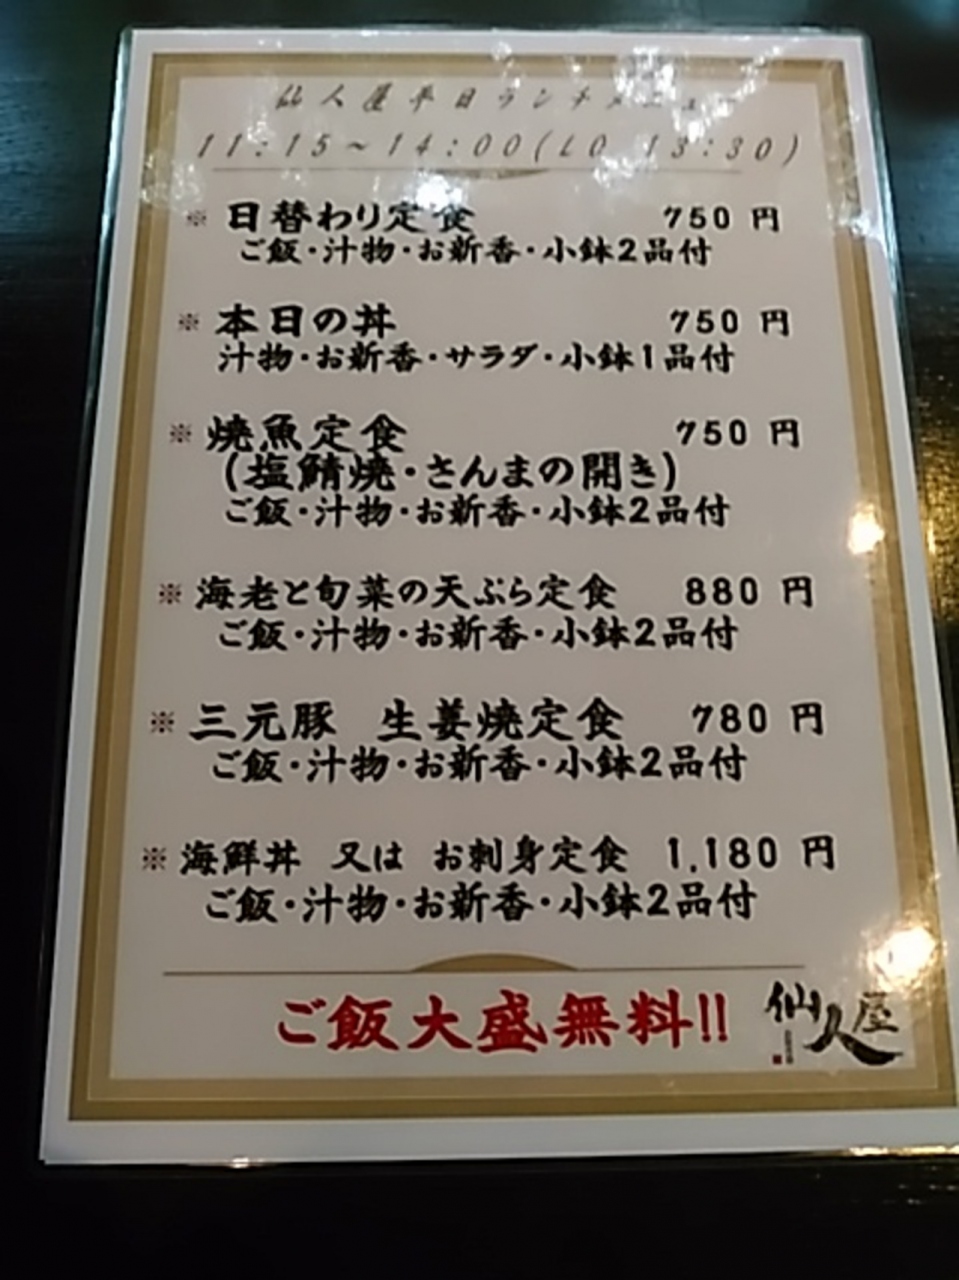 仙人屋平日ランチメニュー
11:15～14:00(LO 13:30)
※ 日替わり定食 750 円
ご飯・汁物・お新香・小鉢2品付
※ 本日の丼 750 円
汁物・お新香・サラダ・小鉢1品付
※ 焼魚定食 750 円
(塩鯖焼・さんまの開き)
ご飯・汁物・お新香・小鉢2品付
※ 海老と旬菜の天ぷら定食 880 円
ご飯・汁物・お新香・小鉢2品付
※ 三元豚 生姜焼定食 780 円
ご飯・汁物・お新香・小鉢2品付
※ 海鮮丼 又は お刺身定食 1,180 円
ご飯・汁物・お新香・小鉢2品付
ご飯大盛無料!!
仙人屋